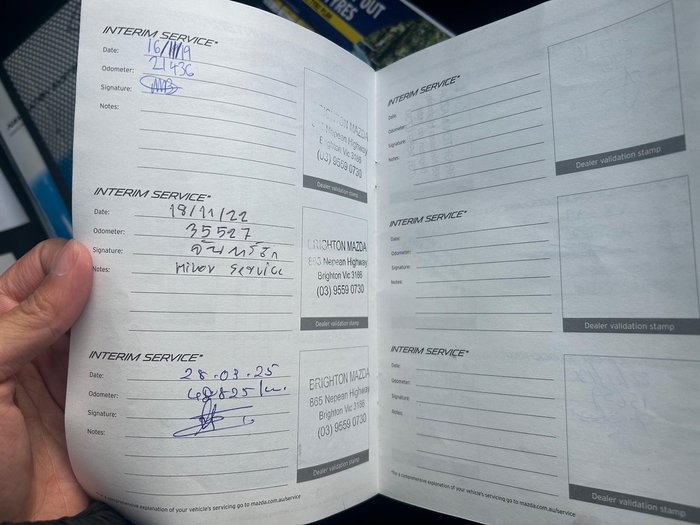 OUT
TYRES
INTERIM SERVICE*
Date: 16/11/19
Odometer: 21436
Signature:
Notes:
BRIGHTON MAZDA
Nepean Highway
Brighton Vic 3186
(03) 9559 0730
Dealer validation stamp
INTERIM SERVICE*
Date: 18/11/22
Odometer: 35527
Signature:
Notes: minor service
BRIGHTON MAZDA
Nepean Highway
Brighton Vic 3186
(03) 9559 0730
Dealer validation stamp
INTERIM SERVICE*
Date: 28.03.25
Odometer:
Signature:
Notes:
BRIGHTON MAZDA
865 Nepean Highway
Brighton Vic 3186
(03) 9559 0730
Dealer validation stamp
*For a comprehensive explanation of your vehicle's servicing go to mazda.com.au/service
INTERIM SERVICE*
Date:
Odometer:
Signature:
Notes:
Dealer validation stamp
INTERIM SERVICE*
Date:
Odometer:
Signature:
Notes:
Dealer validation stamp
INTERIM SERVICE*
Date:
Odometer:
Signature:
Notes:
Dealer validation stamp
*For a comprehensive explanation of your vehicle's servicing go to mazda.com.au/service